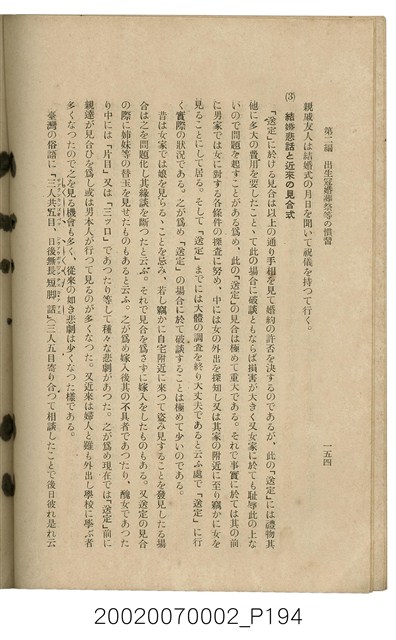 第二編 出生冠婚葬祭等の慣習
一五四
親戚友人は結婚式の月日を聞いて祝儀を持つて行く。
(3) 結婚悲話と近來の見合式
「送定」に於ける見合は以上の通り手相を見て婚約の許否を決するのであるが、此の「送定」には禮物其
他に多大の費用を要したことゝて此の場合に破談ともならば損害が大きく又女家に於ても恥辱此の上な
いので問題を起すことがある爲め、此の「送定」の見合は極めて重大である。それで事實に於ては其の前
に男家では女に對する各條件の探査に努め、中には女の外出を探知し又は其家の附近に至り竊かに女を
見ることにして居る。そして「送定」までには大體の調査を終り大丈夫であると云ふ處で「送定」に行
く實際の狀況である。之が爲め「送定」の場合に於て破談することは極めて少いのである。
昔は女家では娘を見らるゝことを忌み、若し竊かに自宅附近に來つて盗み見することを發見したる場
合は之を問題化し其緣談を斷つたと云ふ。それで見合を爲さずに嫁入をしたものもある。又送定の見合
の際に姉妹等の替玉を見せたものもあると云ふ。之が爲め嫁入後其の不具者であつたり、醜女であつた
り中には「片目」又は「三ツ口」であつたり等して種々な悲劇があつた。之が爲め現在では「送定」前に
親達が見合ひを爲し或は男本人が行つて見るのが多くなつた。又近來は婦人と雖も外出し學校に學ぶ者
多くなつたので之を見る機會も多く、從來の如き悲劇は少くなつた樣である。
臺灣の俗話に「三人共五目、日後無長短脚話」(三人五目寄り合つて相談したことで後日彼れ是れ云
20020070002_P194